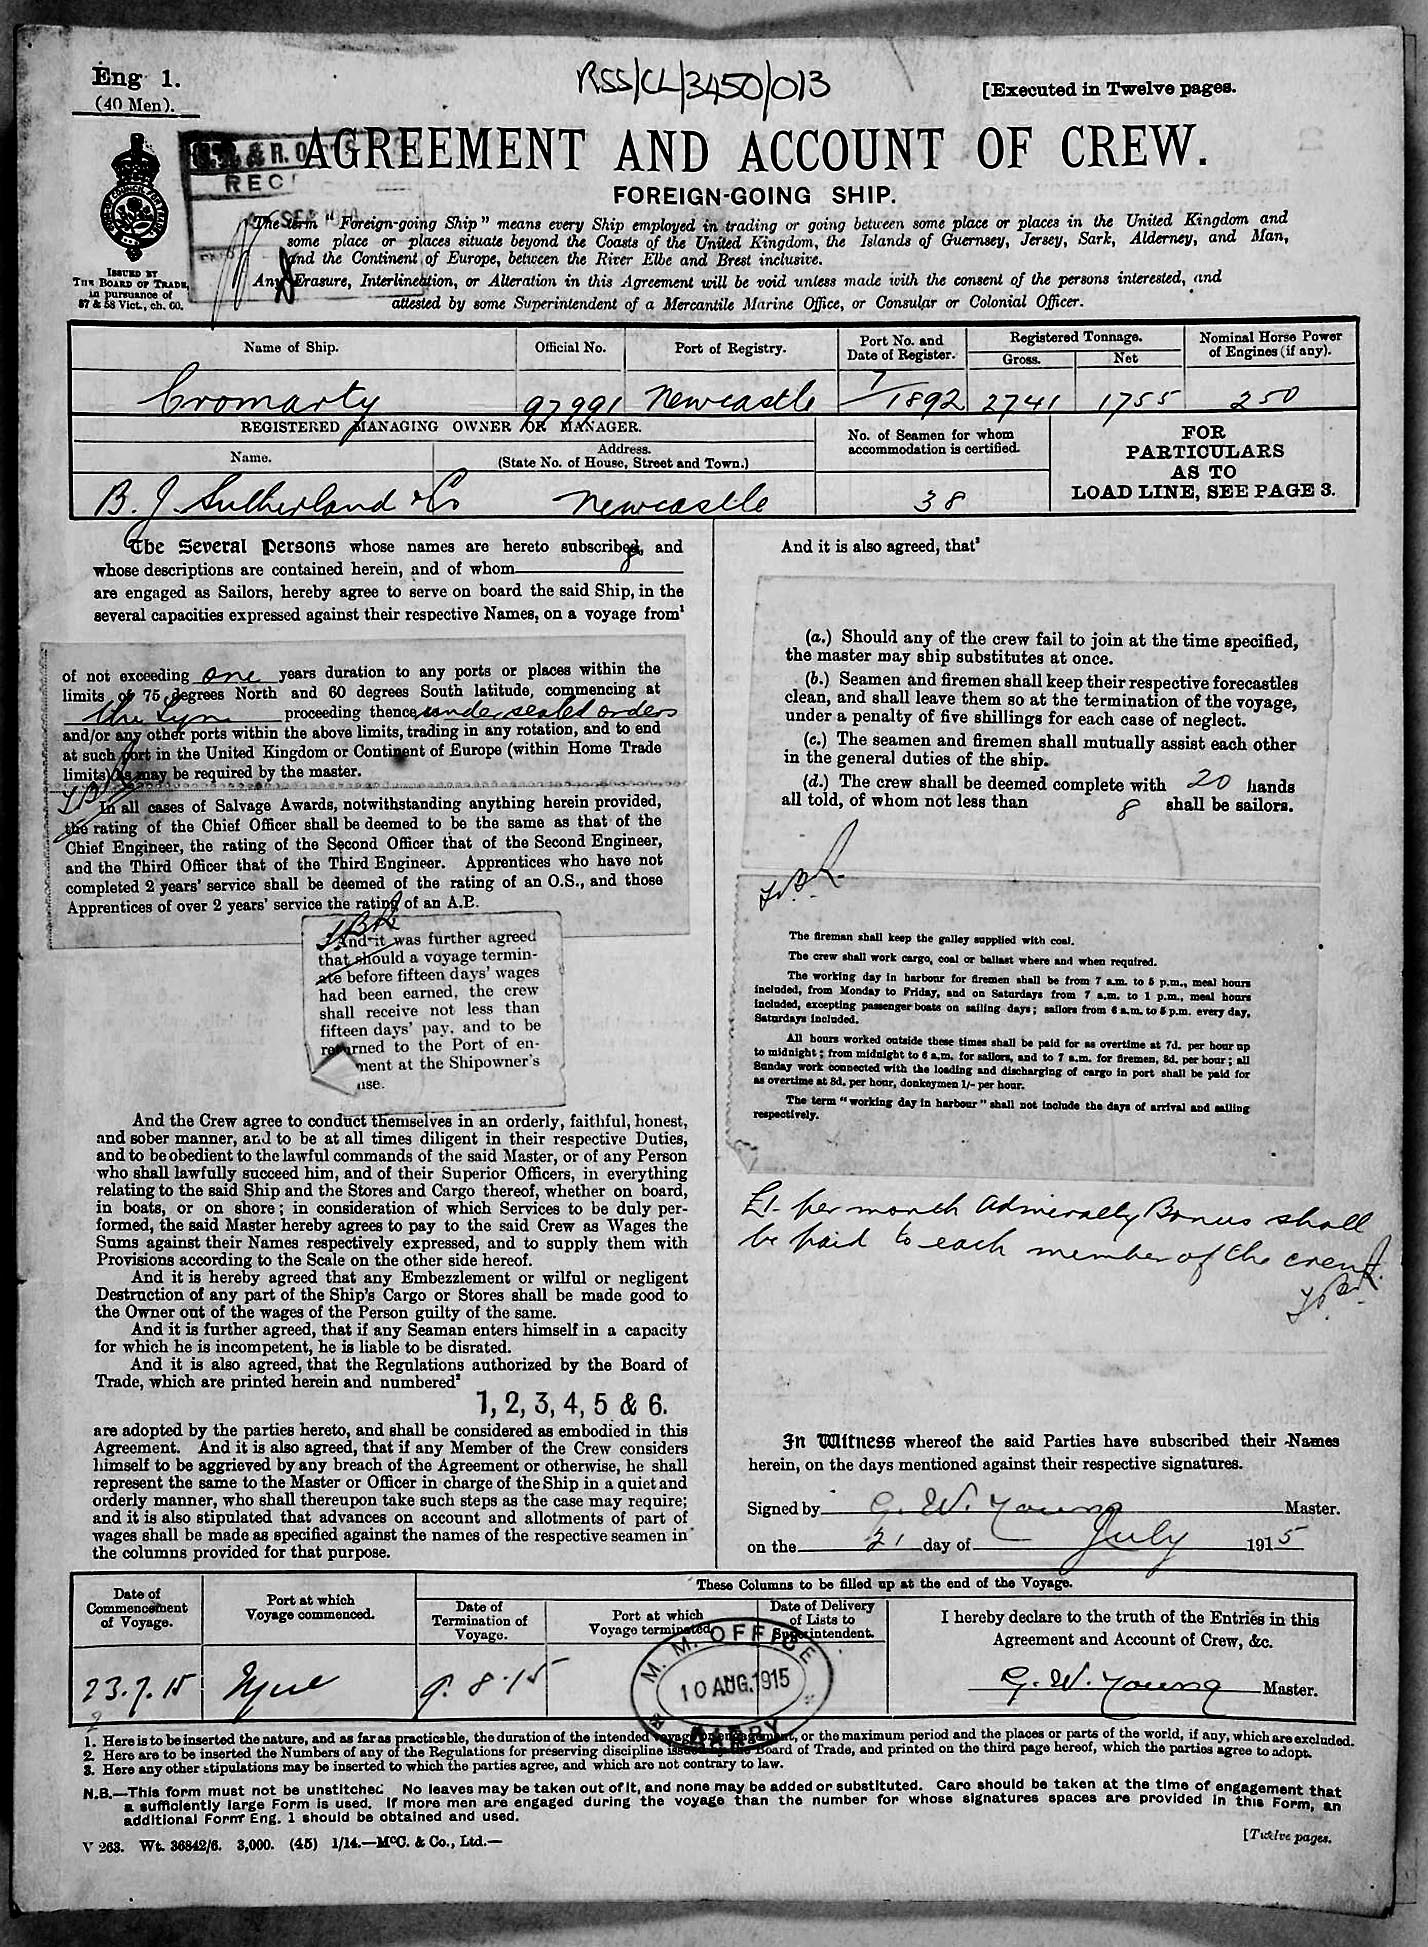 Eng 1.
(40 Men).
RSS/CL/3450/013
[Executed in Twelve pages.
& R. O
REC
AGREEMENT AND ACCOUNT OF CREW.
FOREIGN-GOING SHIP.
The term "Foreign-going Ship" means every Ship employed in trading or going between some place or places in the United Kingdom and
some place or places situate beyond the Coasts of the United Kingdom, the Islands of Guernsey, Jersey, Sark, Alderney, and Man,
and the Continent of Europe, between the River Elbe and Brest inclusive.
Any Erasure, Interlineation, or Alteration in this Agreement will be void unless made with the consent of the persons interested, and
attested by some Superintendent of a Mercantile Marine Office, or Consular or Colonial Officer.
ISSUED BY
THE BOARD OF TRADE,
in pursuance of
57 & 58 Vict., ch. 60.
Name of Ship.
Official No.
Port of Registry.
Port No. and
Date of Register.
Registered Tonnage.
Gross.
Net
Nominal Horse Power
of Engines (if any).
Cromarty
97991
Newcastle
7/1892
2741
1755
250
REGISTERED MANAGING OWNER OR MANAGER.
Name.
Address.
(State No. of House, Street and Town.)
No. of Seamen for whom
accommodation is certified.
FOR
PARTICULARS
AS TO
LOAD LINE, SEE PAGE 3.
B. J. Sutherland & Co
Newcastle
38
The Several Persons whose names are hereto subscribed, and
whose descriptions are contained herein, and of whom 8
are engaged as Sailors, hereby agree to serve on board the said Ship, in the
several capacities expressed against their respective Names, on a voyage from¹
of not exceeding one years duration to any ports or places within the
limits of 75 degrees North and 60 degrees South latitude, commencing at
the Tyne proceeding thence under sealed orders
and/or any other ports within the above limits, trading in any rotation, and to end
at such port in the United Kingdom or Continent of Europe (within Home Trade
limits) as may be required by the master.
In all cases of Salvage Awards, notwithstanding anything herein provided,
the rating of the Chief Officer shall be deemed to be the same as that of the
Chief Engineer, the rating of the Second Officer that of the Second Engineer,
and the Third Officer that of the Third Engineer. Apprentices who have not
completed 2 years' service shall be deemed of the rating of an O.S., and those
Apprentices of over 2 years' service the rating of an A.B.
And it was further agreed
that should a voyage termin-
ate before fifteen days' wages
had been earned, the crew
shall receive not less than
fifteen days' pay, and to be
returned to the Port of en-
ment at the Shipowner's
nse.
And the Crew agree to conduct themselves in an orderly, faithful, honest,
and sober manner, and to be at all times diligent in their respective Duties,
and to be obedient to the lawful commands of the said Master, or of any Person
who shall lawfully succeed him, and of their Superior Officers, in everything
relating to the said Ship and the Stores and Cargo thereof, whether on board,
in boats, or on shore; in consideration of which Services to be duly per-
formed, the said Master hereby agrees to pay to the said Crew as Wages the
Sums against their Names respectively expressed, and to supply them with
Provisions according to the Scale on the other side hereof.
And it is hereby agreed that any Embezzlement or wilful or negligent
Destruction of any part of the Ship's Cargo or Stores shall be made good to
the Owner out of the wages of the Person guilty of the same.
And it is further agreed, that if any Seaman enters himself in a capacity
for which he is incompetent, he is liable to be disrated.
And it is also agreed, that the Regulations authorized by the Board of
Trade, which are printed herein and numbered²
1, 2, 3, 4, 5 & 6.
are adopted by the parties hereto, and shall be considered as embodied in this
Agreement. And it is also agreed, that if any Member of the Crew considers
himself to be aggrieved by any breach of the Agreement or otherwise, he shall
represent the same to the Master or Officer in charge of the Ship in a quiet and
orderly manner, who shall thereupon take such steps as the case may require;
and it is also stipulated that advances on account and allotments of part of
wages shall be made as specified against the names of the respective seamen in
the columns provided for that purpose.
And it is also agreed, that³
(a.) Should any of the crew fail to join at the time specified,
the master may ship substitutes at once.
(b.) Seamen and firemen shall keep their respective forecastles
clean, and shall leave them so at the termination of the voyage,
under a penalty of five shillings for each case of neglect.
(c.) The seamen and firemen shall mutually assist each other
in the general duties of the ship.
(d.) The crew shall be deemed complete with 20 hands
all told, of whom not less than 8 shall be sailors.
The fireman shall keep the galley supplied with coal.
The crew shall work cargo, coal or ballast where and when required.
The working day in harbour for firemen shall be from 7 a.m. to 5 p.m., meal hours
included, from Monday to Friday, and on Saturdays from 7 a.m. to 1 p.m., meal hours
included, excepting passenger boats on sailing days; sailors from 6 a.m. to 5 p.m. every day,
Saturdays included.
All hours worked outside these times shall be paid for as overtime at 7d. per hour up
to midnight; from midnight to 6 a.m. for sailors, and to 7 a.m. for firemen, 8d. per hour; all
Sunday work connected with the loading and discharging of cargo in port shall be paid for
as overtime at 8d. per hour, donkeymen 1/- per hour.
The term "working day in harbour" shall not include the days of arrival and sailing
respectively.
£1- per month Admiralty Bonus shall
be paid to each member of the crew.
In Witness whereof the said Parties have subscribed their Names
herein, on the days mentioned against their respective signatures.
Signed by G. W. Young Master.
on the 21 day of July 1915
These Columns to be filled up at the end of the Voyage.
Date of
Commencement
of Voyage.
Port at which
Voyage commenced.
Date of
Termination of
Voyage.
Port at which
Voyage terminated.
Date of Delivery
of Lists to
Superintendent.
I hereby declare to the truth of the Entries in this
Agreement and Account of Crew, &c.
23.7.15
Tyne
9.8.15
M. M. OFFICE
10 AUG. 1915
BARRY
G. W. Young Master.
1. Here is to be inserted the nature, and as far as practicable, the duration of the intended voyage or engagement, or the maximum period and the places or parts of the world, if any, which are excluded.
2. Here are to be inserted the Numbers of any of the Regulations for preserving discipline issued by the Board of Trade, and printed on the third page hereof, which the parties agree to adopt.
3. Here any other stipulations may be inserted to which the parties agree, and which are not contrary to law.
N.B.—This form must not be unstitched. No leaves may be taken out of it, and none may be added or substituted. Care should be taken at the time of engagement that
a sufficiently large Form is used. If more men are engaged during the voyage than the number for whose signatures spaces are provided in this Form, an
additional Form Eng. 1 should be obtained and used.
V 263. Wt. 36842/6. 3,000. (45) 1/14.—McC. & Co., Ltd.—
[Twelve pages.